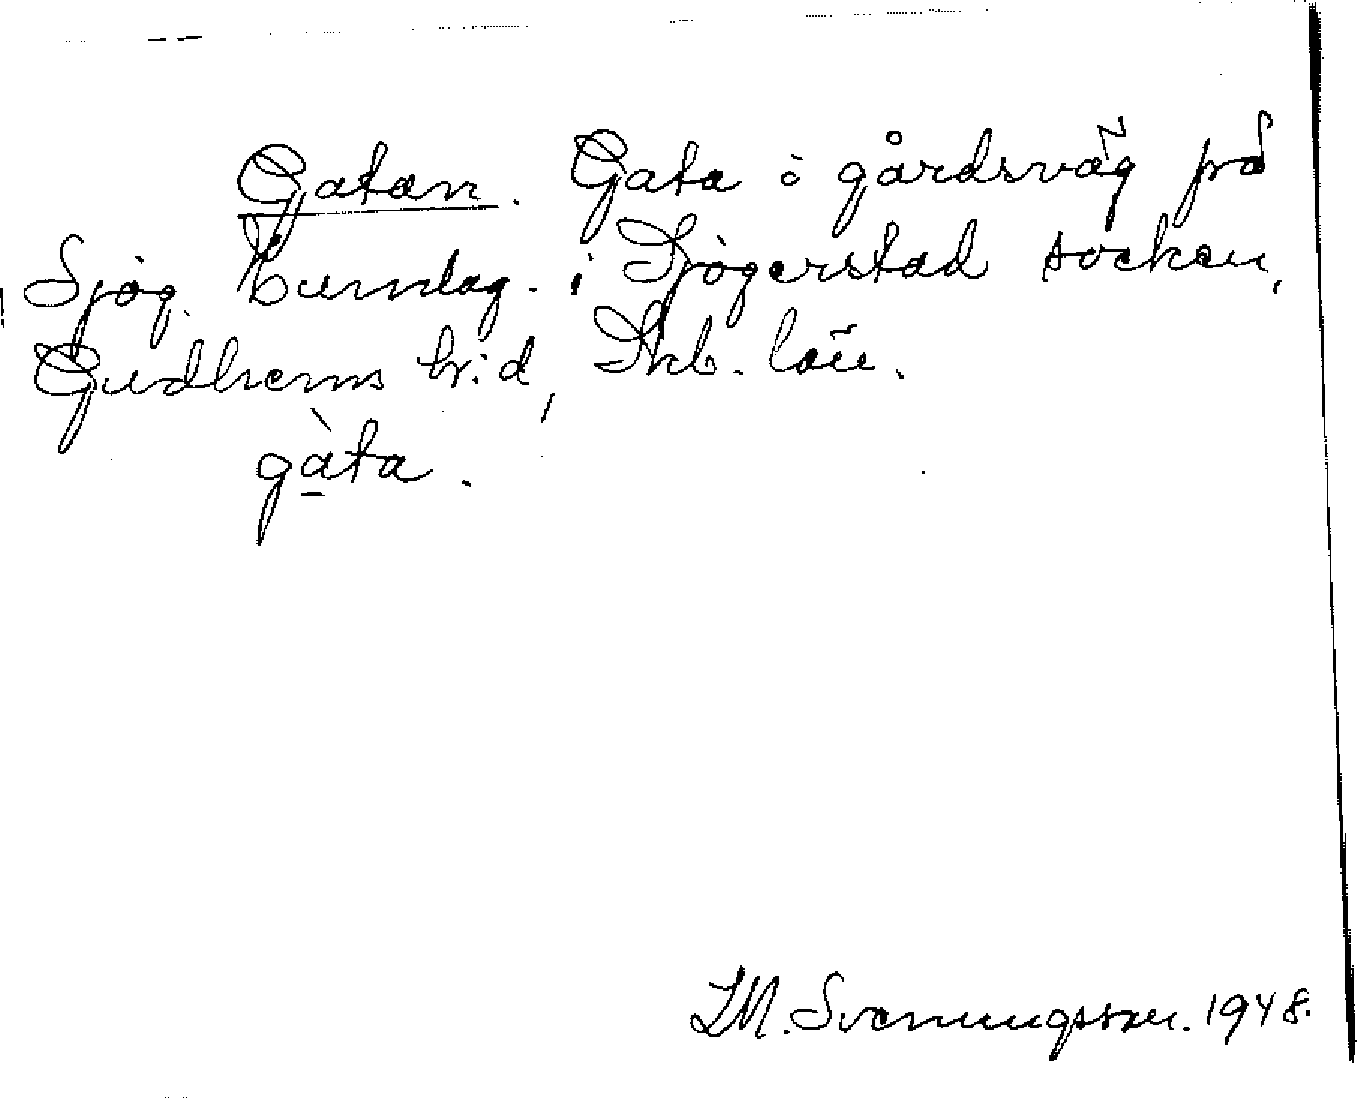 Gatan. Gata o gårdsväg på
Sjög. Lunnlag. i Sjögerstad socken,
Gudhems h:d, Skb. län.
gàta.
LM. Svenungsson. 1948.